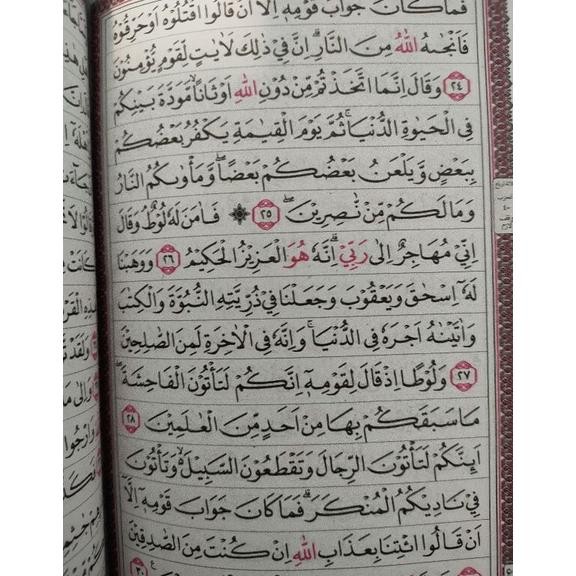 فَمَا كَانَ جَوَابَ قَوْمِهٖٓ اِلَّآ اَنْ قَالُوا اقْتُلُوْهُ اَوْ حَرِّقُوْهُ
فَاَنْجٰىهُ اللّٰهُ مِنَ النَّارِۗ اِنَّ فِيْ ذٰلِكَ لَاٰيٰتٍ لِّقَوْمٍ يُّؤْمِنُوْنَ
٢٤ وَقَالَ اِنَّمَا اتَّخَذْتُمْ مِّنْ دُوْنِ اللّٰهِ اَوْثَانًاۙ مَّوَدَّةَ بَيْنِكُمْ
فِى الْحَيٰوةِ الدُّنْيَاۚ ثُمَّ يَوْمَ الْقِيٰمَةِ يَكْفُرُ بَعْضُكُمْ
بِبَعْضٍ وَّيَلْعَنُ بَعْضُكُمْ بَعْضًاۖ وَّمَأْوٰىكُمُ النَّارُ
وَمَا لَكُمْ مِّنْ نّٰصِرِيْنَۖ ٢٥ ۞ فَاٰمَنَ لَهٗ لُوْطٌۘ وَقَالَ
اِنِّيْ مُهَاجِرٌ اِلٰى رَبِّيْۗ اِنَّهٗ هُوَ الْعَزِيْزُ الْحَكِيْمُ ٢٦ وَوَهَبْنَا
لَهٗٓ اِسْحٰقَ وَيَعْقُوْبَ وَجَعَلْنَا فِيْ ذُرِّيَّتِهِ النُّبُوَّةَ وَالْكِتٰبَ
وَاٰتَيْنٰهُ اَجْرَهٗ فِى الدُّنْيَاۚ وَاِنَّهٗ فِى الْاٰخِرَةِ لَمِنَ الصّٰلِحِيْنَ
٢٧ وَلُوْطًا اِذْ قَالَ لِقَوْمِهٖٓ اِنَّكُمْ لَتَأْتُوْنَ الْفَاحِشَةَۖ
مَا سَبَقَكُمْ بِهَا مِنْ اَحَدٍ مِّنَ الْعٰلَمِيْنَ ٢٨
اَىِٕنَّكُمْ لَتَأْتُوْنَ الرِّجَالَ وَتَقْطَعُوْنَ السَّبِيْلَ ەۙ وَتَأْتُوْنَ
فِيْ نَادِيْكُمُ الْمُنْكَرَۗ فَمَا كَانَ جَوَابَ قَوْمِهٖٓ اِلَّآ
اَنْ قَالُوا ائْتِنَا بِعَذَابِ اللّٰهِ اِنْ كُنْتَ مِنَ الصّٰدِقِيْنَ